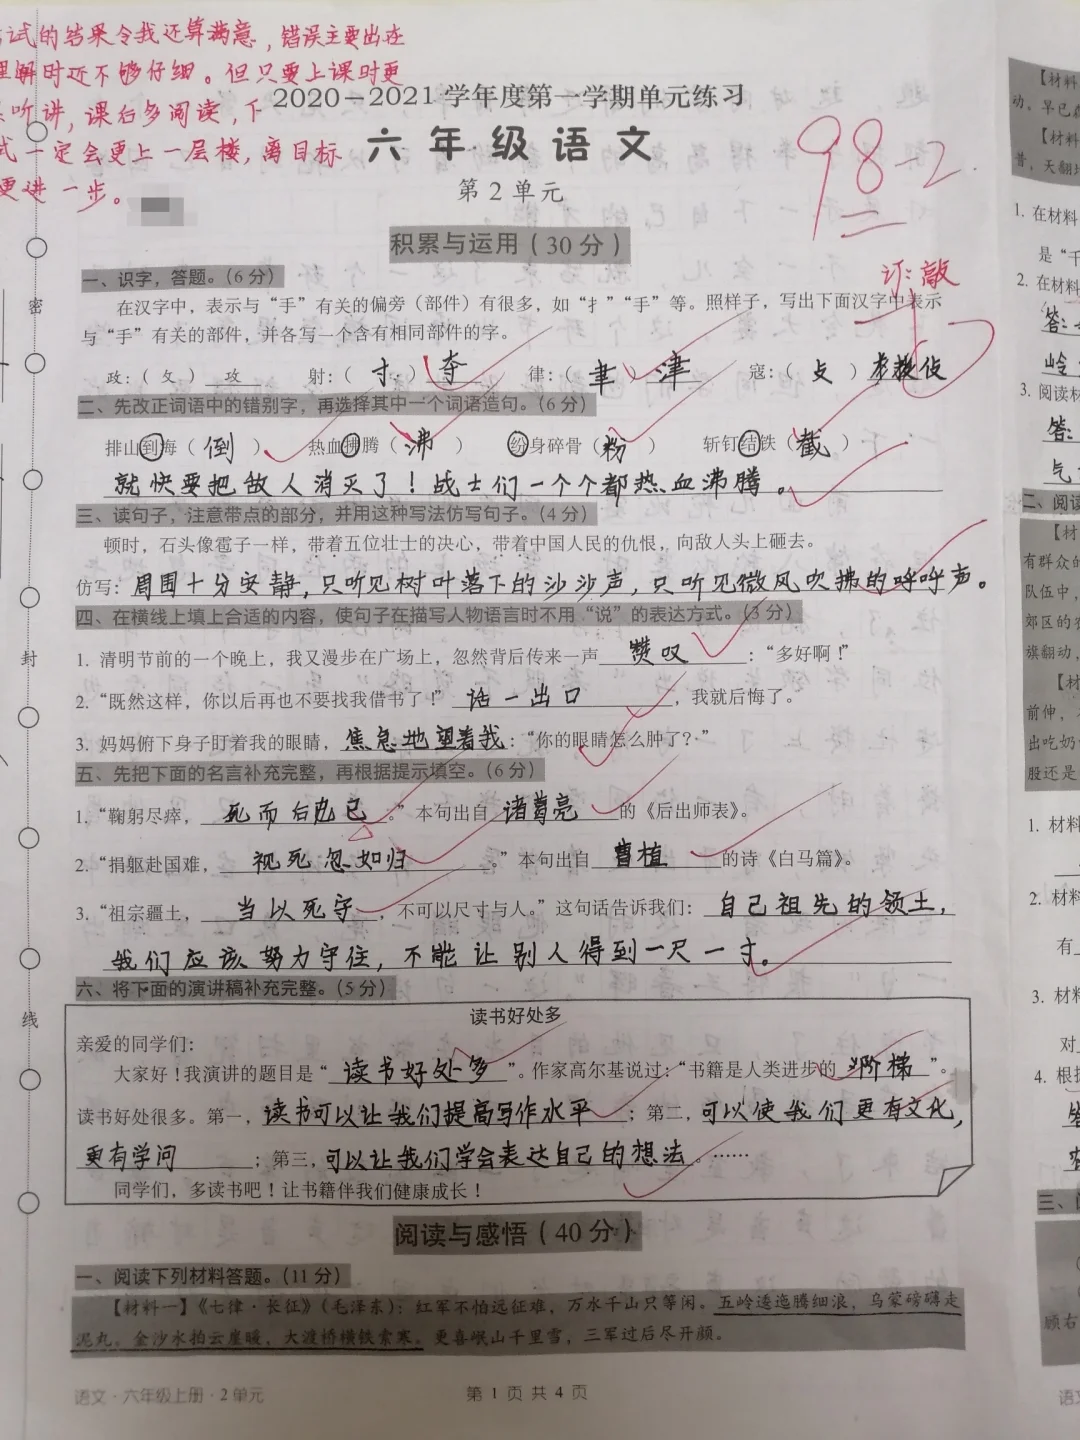 试的结果令我还算满意，错误主要出在
理解时还不够仔细。但只要上课时更
听讲，课后多阅读，下
2020－2021学年度第一学期单元练习
一定会更上一层楼，离目标
更进一步。
六年级语文
98-2
第2单元
积累与运用（30分）
一、识字，答题。（6分）
订：敲
在汉字中，表示与“手”有关的偏旁（部件）有很多，如“扌”“手”等。照样子，写出下面汉字中表示
与“手”有关的部件，并各写一个含有相同部件的字。
政：（ 攵 ） 攻 射：（ 寸 ） 夺 律：（ 聿 ） 津 寇：（ 攴 ）
二、先改正词语中的错别字，再选择其中一个词语造句。（6分）
排山到海（ 倒 ） 热血拂腾（ 沸 ） 纷身碎骨（ 粉 ） 斩钉结铁（ 截 ）
就快要把敌人消灭了！战士们一个个都热血沸腾。
三、读句子，注意带点的部分，并用这种写法仿写句子。（4分）
顿时，石头像雹子一样，带着五位壮士的决心，带着中国人民的仇恨，向敌人头上砸去。
仿写：周围十分安静，只听见树叶落下的沙沙声，只听见微风吹拂的呼呼声。
四、在横线上填上合适的内容，使句子在描写人物语言时不用“说”的表达方式。（3分）
1. 清明节前的一个晚上，我又漫步在广场上，忽然背后传来一声 赞叹 ：“多好啊！”
2. “既然这样，你以后再也不要找我借书了！” 话一出口 ，我就后悔了。
3. 妈妈俯下身子盯着我的眼睛， 焦急地望着我：“你的眼睛怎么肿了？”
五、先把下面的名言补充完整，再根据提示填空。（6分）
1. “鞠躬尽瘁， 死而后已 。”本句出自 诸葛亮 的《后出师表》。
2. “捐躯赴国难， 视死忽如归 。”本句出自 曹植 的诗《白马篇》。
3. “祖宗疆土， 当以死守 ，不可以尺寸与人。”这句话告诉我们： 自己祖先的领土，
我们应该努力守住，不能让别人得到一尺一寸。
六、将下面的演讲稿补充完整。（5分）
读书好处多
亲爱的同学们：
大家好！我演讲的题目是“ 读书好处多 ”。作家高尔基说过：“书籍是人类进步的 阶梯 ”。
读书好处很多。第一，读书可以让我们提高写作水平 ；第二，可以使我们更有文化，
更有学问 ；第三，可以让我们学会表达自己的想法 。……
同学们，多读书吧！让书籍伴我们健康成长！
阅读与感悟（40分）
一、阅读下列材料答题。（11分）
【材料一】《七律·长征》（毛泽东）：红军不怕远征难，万水千山只等闲。五岭逶迤腾细浪，乌蒙磅礴走
泥丸。金沙水拍云崖暖，大渡桥横铁索寒。更喜岷山千里雪，三军过后尽开颜。
语文·六年级上册·2单元
第 1 页 共 4 页
密
封
线
【材料
动。早已
【材料
昔，天翻
1. 在材料
是“千
2. 在材料
答：
岭
3. 阅读材
答：
气
二、阅读
【材
有群众的
队伍中，
郊区的农
旗翻动，
【材
前伸，
出吃奶
股还是
1. 材料
2. 材料
有
3. 材料
对
4. 根据
答
三、
顾右
语文